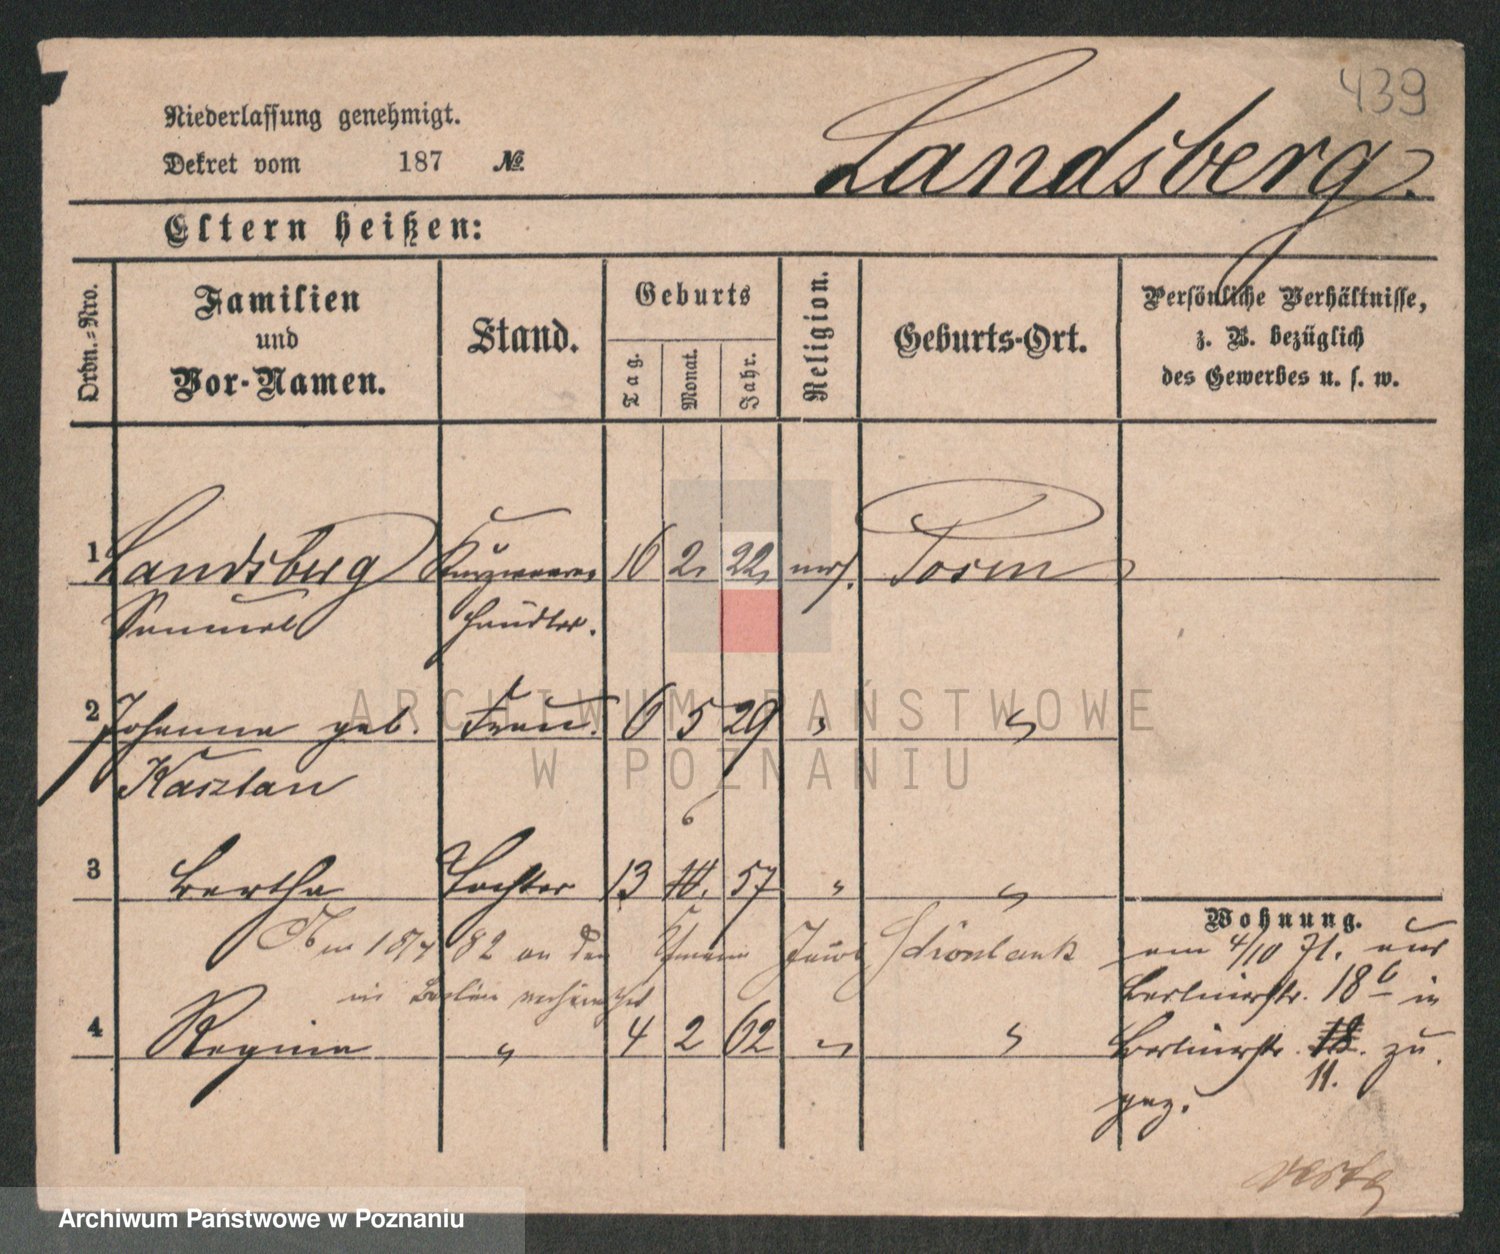 439
Niederlassung genehmigt.
Dekret vom 187 №
Landsberg.
Eltern heißen:
Ordn.-Nro.
Familien
und
Vor-Namen.
Stand.
Geburts
Tag.
Monat.
Jahr.
Religion.
Geburts-Ort.
Persönliche Verhältnisse,
z. B. bezüglich
des Gewerbes u. s. w.
1 Landsberg Kurzwaaren 16 2. 22. mos. Posen
Samuel händler.
2 Johanna geb. Frau. 6 5 29 " "
Kaszlan
6
3 Bertha Tochter 13 10. 57 " "
Wohnung.
82 an den Kfmann Jacob Schönlank
in Berlin verheirathet
4 Regina " 4 2 62 " "
am 4/10 71. aus
Berlinerstr. 18 b in
Berlinerstr. 18. zu
11.
gez.
ARCHIWUM PAŃSTWOWE
W POZNANIU
Archiwum Państwowe w Poznaniu